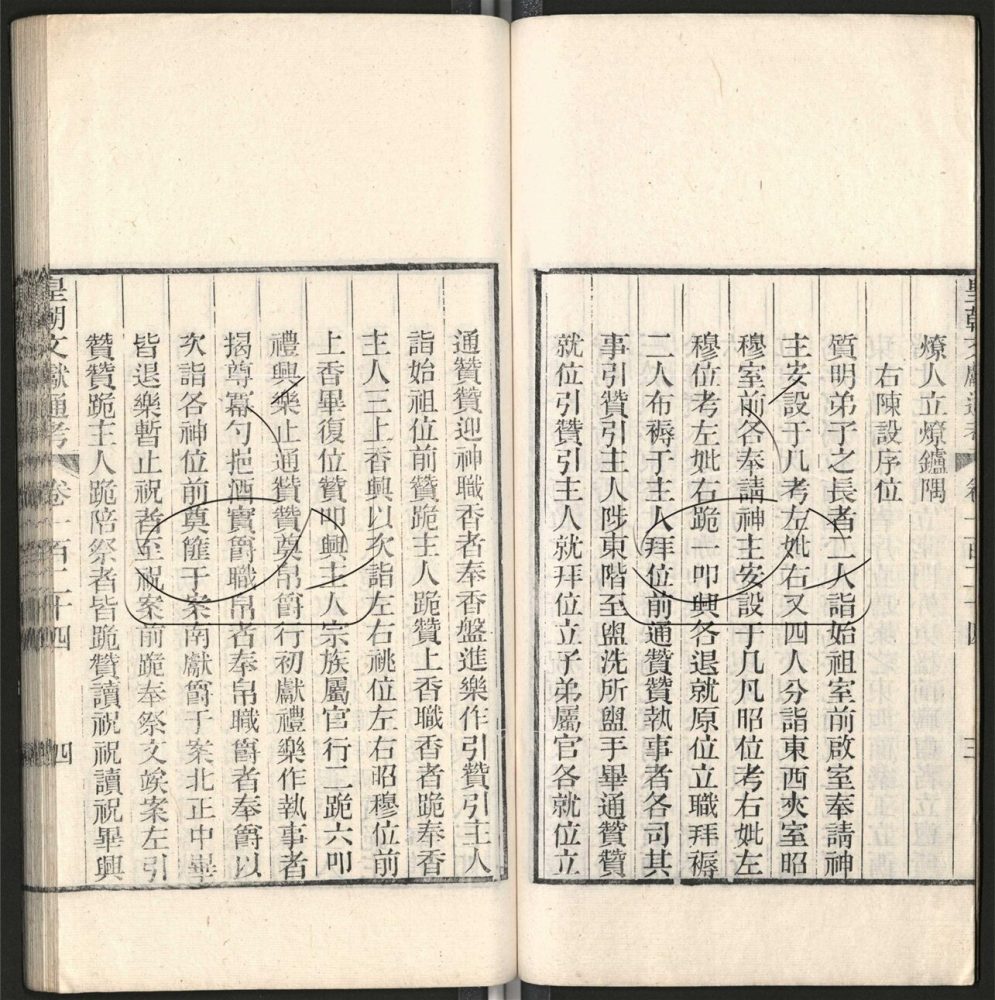 燎人立燎鑪隅
右陳設序位
質明弟子之長者二人詣始祖室前啟室奉請神
主安設于几考左妣右又四人分詣東西夾室昭
穆室前各奉請神主安設于几凡昭位考右妣左
穆位考左妣右跪叩興各退就原位立職拜褥
二人布褥于主人拜位前通贊贊執事者各司其
事引贊引主人陟東階至盥洗所盥手畢通贊贊
就位引贊引主人就拜位立子弟屬官各就位立
通贊贊迎神職香者奉香盤進樂作引贊引主人
詣始祖位前贊跪主人跪贊上香職香者跪奉香
主人三上香興以次詣左右祧位左右昭穆位前
上香畢復位贊叩興主人宗族屬官行二跪六叩
禮興樂止通贊贊奠帛爵行初獻禮樂作執事者
揭尊冪勺挹酒實爵職帛者奉帛職爵者奉爵以
次詣各神位前奠篚于案南獻爵于案北正中畢
皆退樂暫止祝者至祝案前跪奉祭文竢案左引
贊贊跪主人跪陪祭者皆跪贊讀祝祝讀祝畢興
皇朝文獻通考 卷一百二十四 四